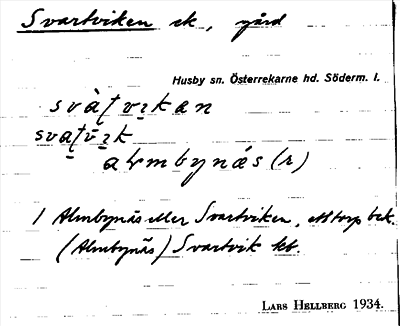 Svartviken ek, gård
Husby sn. Österrekarne hd. Söderm. l.
svàʈvıkan
svaʈvık
almbynás (r)
/ Almbynäs eller Svartviken,
(Almbynäs) Svartvik kb.
LARS HELLBERG 1934.